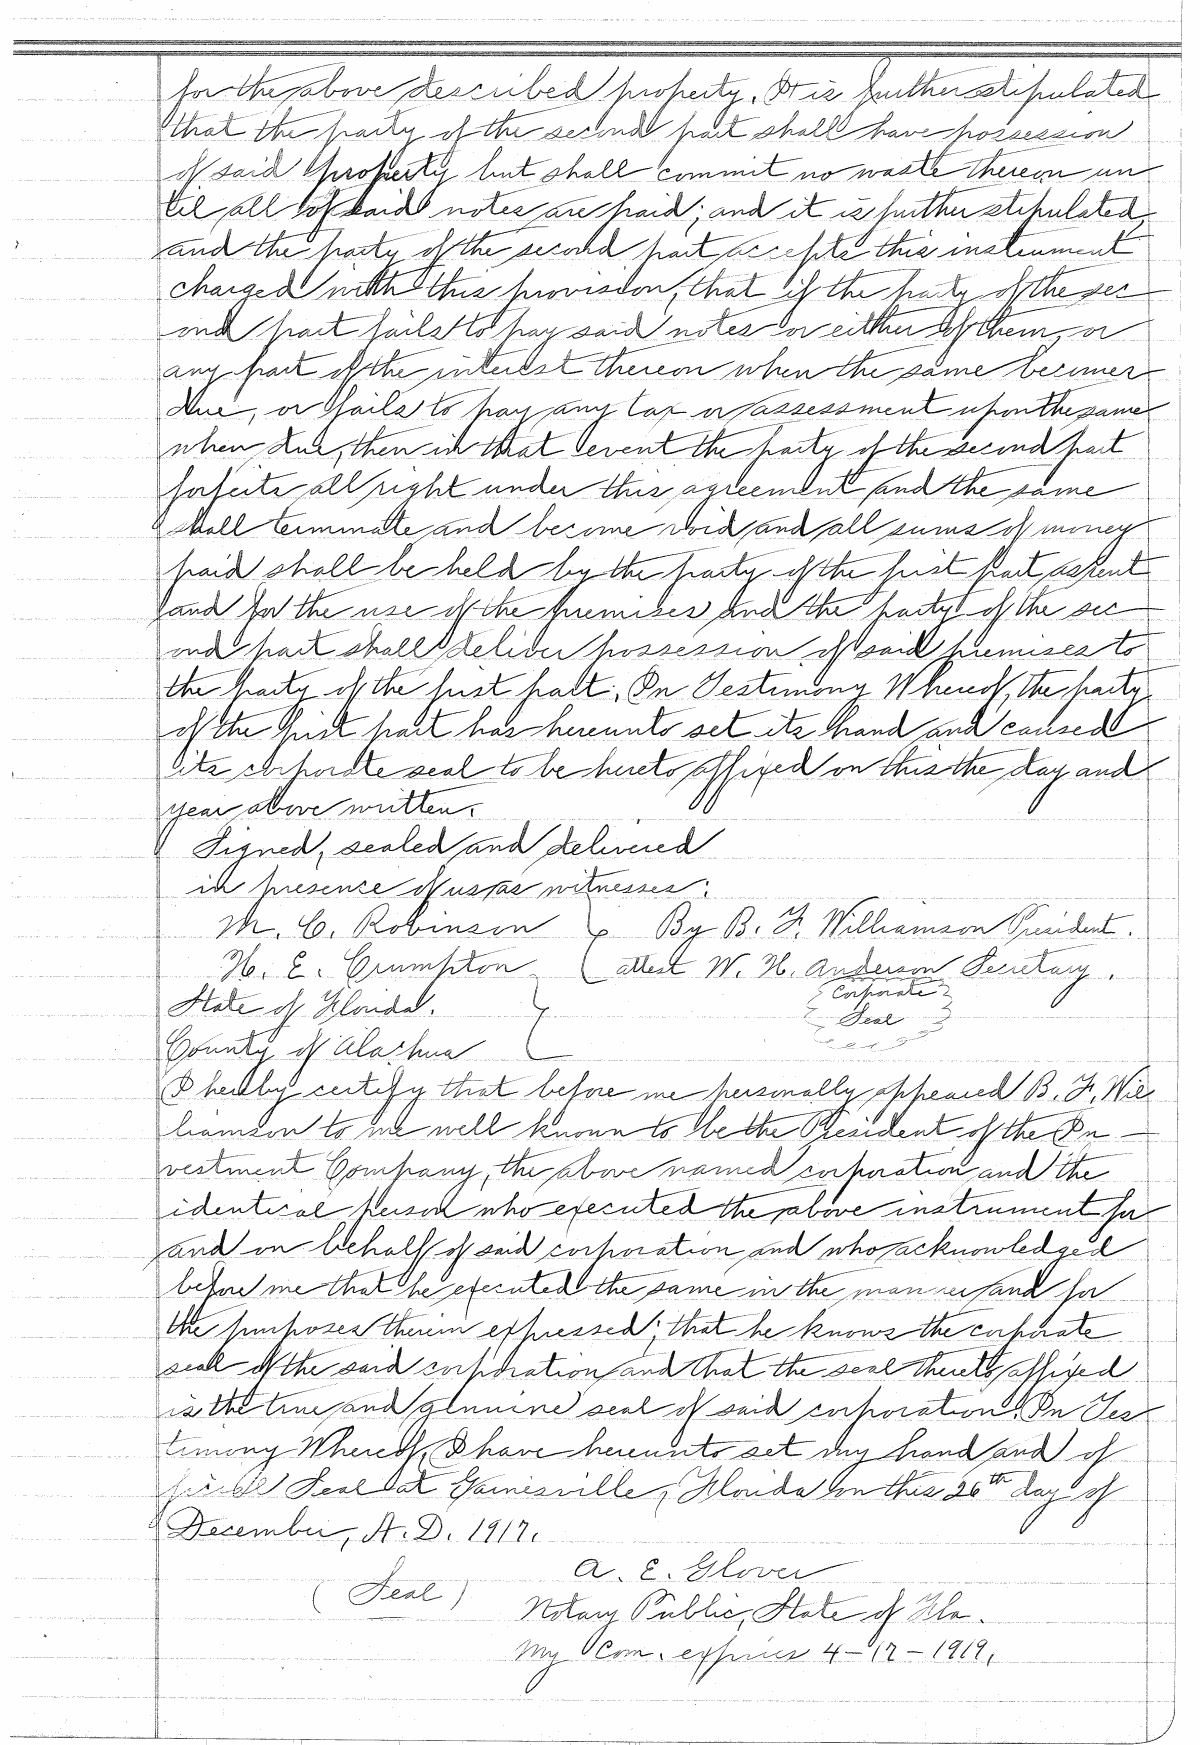 for the above described property. It is further stipulated
that the party of the second part shall have possession
of said property but shall commit no waste thereon un
til all of said notes are paid; and it is further stipulated,
and the party of the second part accepts this instrument
charged with this provision, that if the party of the sec
ond part fails to pay said notes or either of them, or
any part of the interest thereon when the same becomes
due, or fails to pay any tax or assessment upon the same
when due, then in that event the party of the second part
forfeits all right under this agreement and the same
shall terminate and become void and all sums of money
paid shall be held by the party of the first part as rent
and for the use of the premises and the party of the sec
ond part shall deliver possession of said premises to
the party of the first part. In Testimony Whereof, the party
of the first part has hereunto set its hand and caused
its corporate seal to be hereto affixed on this the day and
year above written.
Signed, sealed and delivered
in presence of us as witnesses:
M. C. Robinson } By B. F. Williamson President.
H. E. Crumpton attest W. H. Anderson Secretary.
Corporate
Seal
State of Florida.
County of Alachua
I hereby certify that before me personally appeared B. F. Wil
liamson to me well known to be the President of the In
vestment Company, the above named corporation and the
identical person who executed the above instrument for
and on behalf of said corporation and who acknowledged
before me that he executed the same in the manner and for
the purposes therein expressed; that he knows the corporate
seal of the said corporation and that the seal thereto affixed
is the true and genuine seal of said corporation. In Tes
timony Whereof, I have hereunto set my hand and of
ficial Seal at Gainesville, Florida on this 26th day of
December, A.D. 1917.
A. E. Glover
(Seal)
Notary Public, State of Fla.
My Com. expires 4-17-1919.